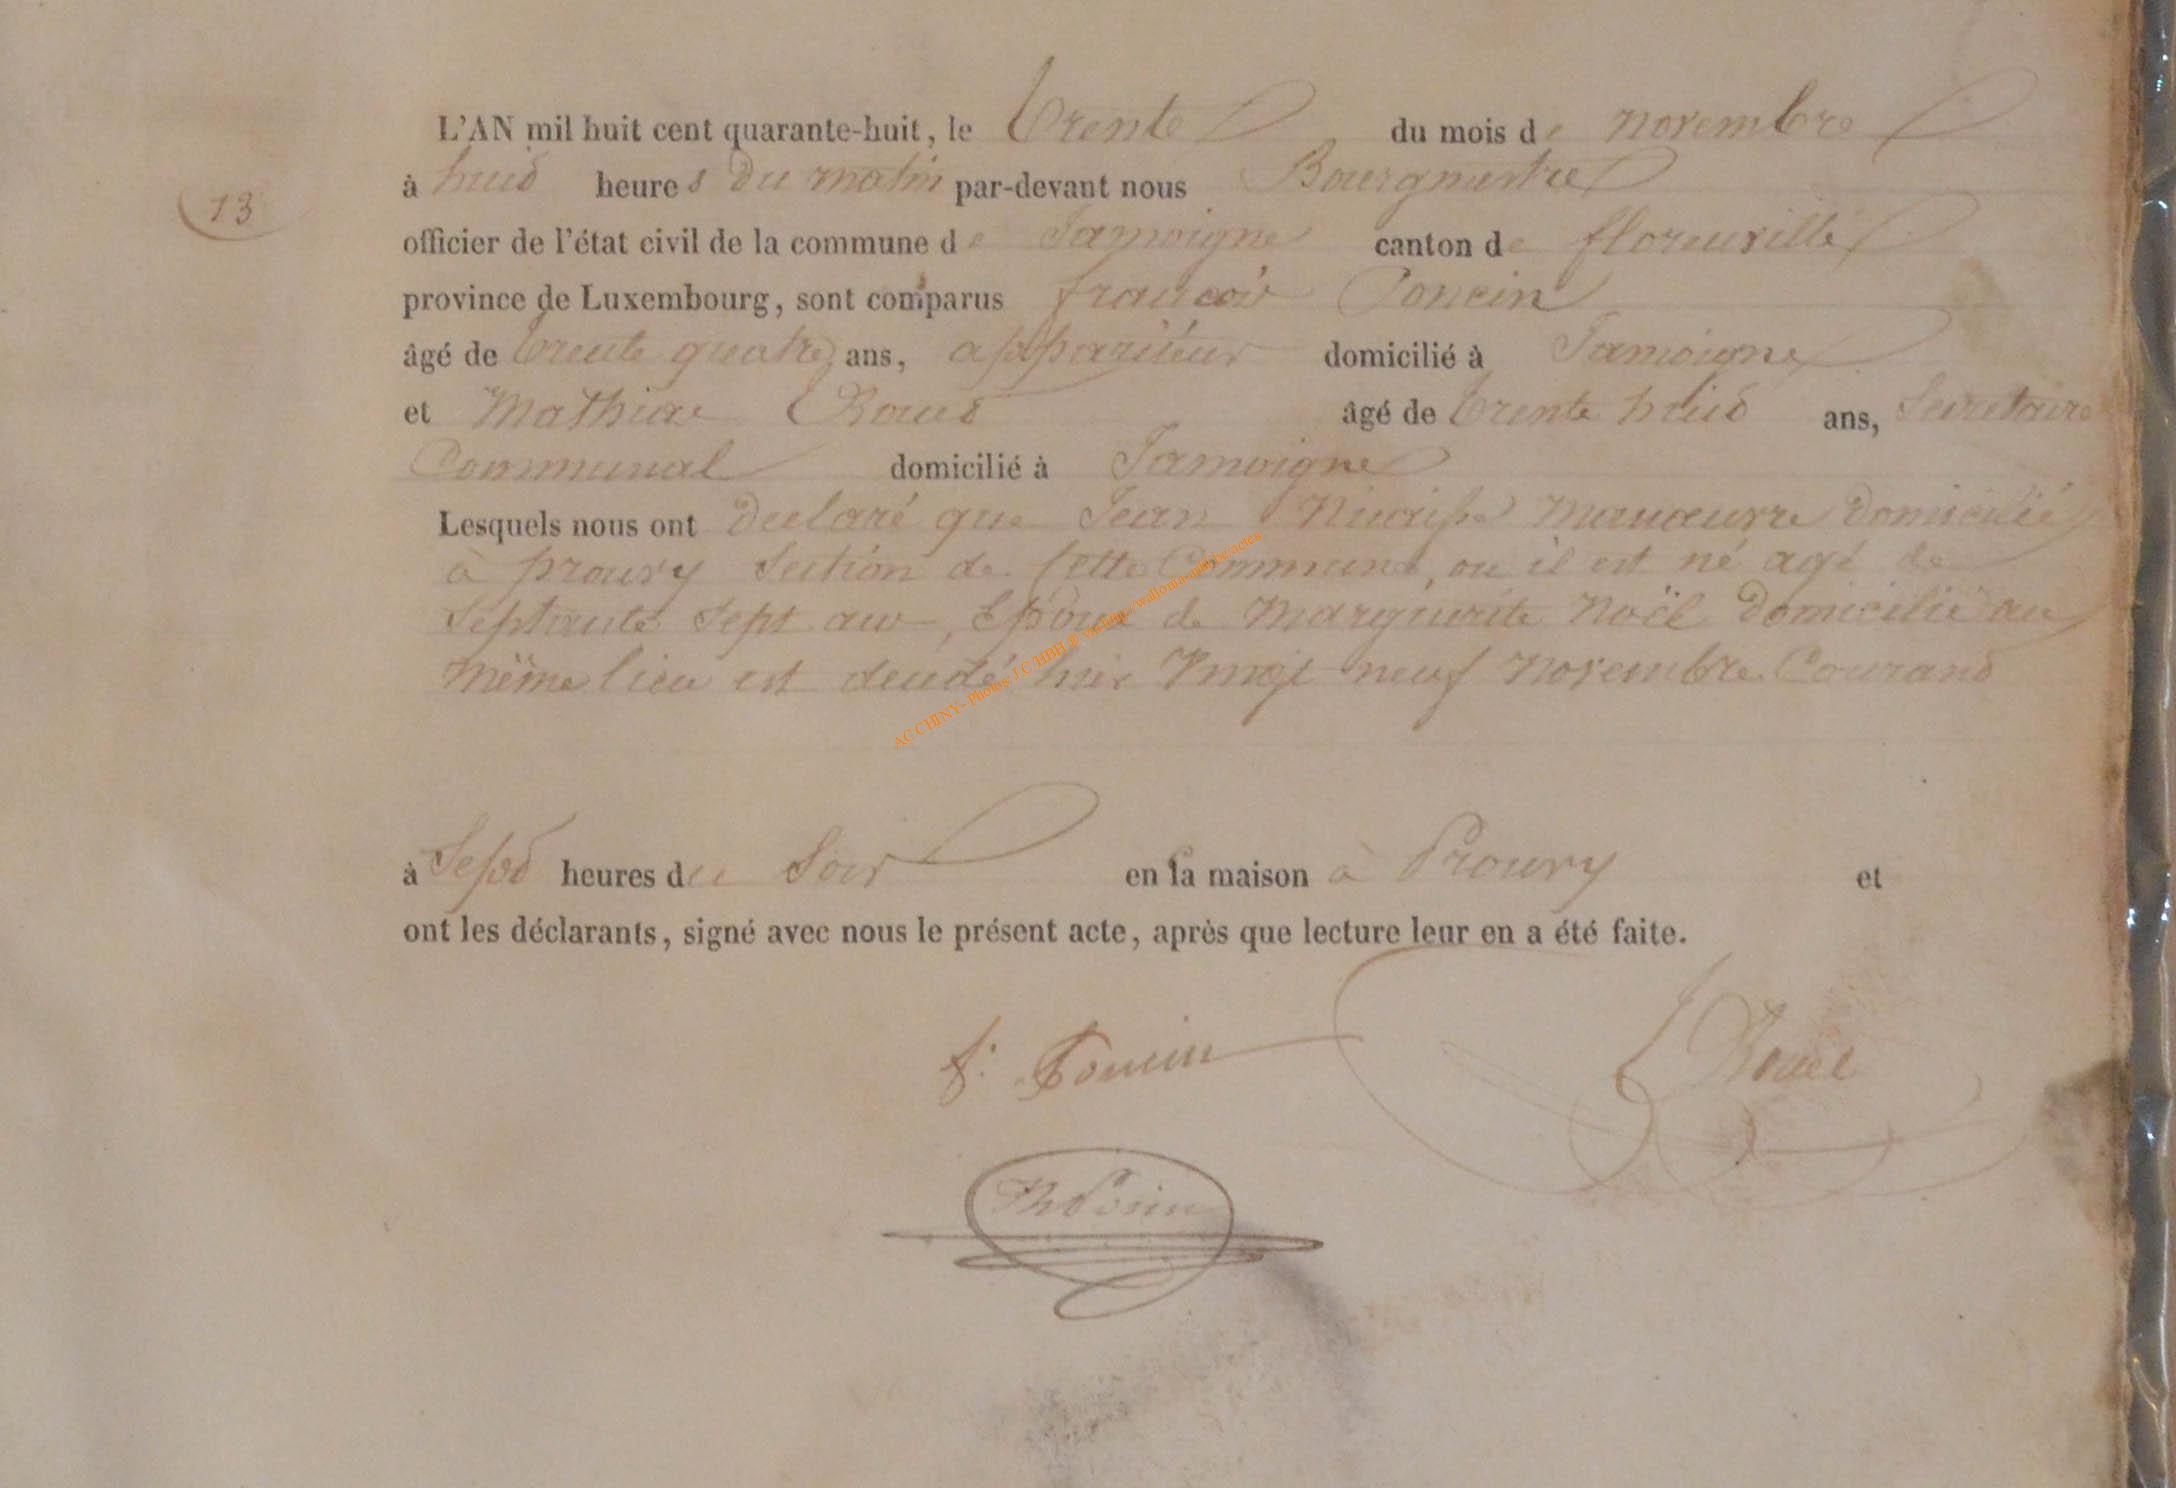 L'AN mil huit cent quarante-huit, le trente du mois de novembre
13
à huit heures du matin par-devant nous Bourgmestre
officier de l'état civil de la commune de Jamoigne canton de florenville
province de Luxembourg, sont comparus françois Poncin
âgé de trente quatre ans, appariteur domicilié à Jamoigne
et Mathias âgé de trente huit ans, Secretaire
Communal domicilié à Jamoigne
Lesquels nous ont declaré que Jean Nicaise manœuvre domicilié
à prouvy Section de cette Commune, ou il est né agé de
Septante Sept ans, Epoux de Marguerite Noël domicilié au
même lieu est decedé hier Vingt neuf novembre Courant
AC CHINY - Photos J.C HBH @
à Sept heures du Soir en la maison à Prouvy et
ont les déclarants, signé avec nous le présent acte, après que lecture leur en a été faite.
f: Poncin